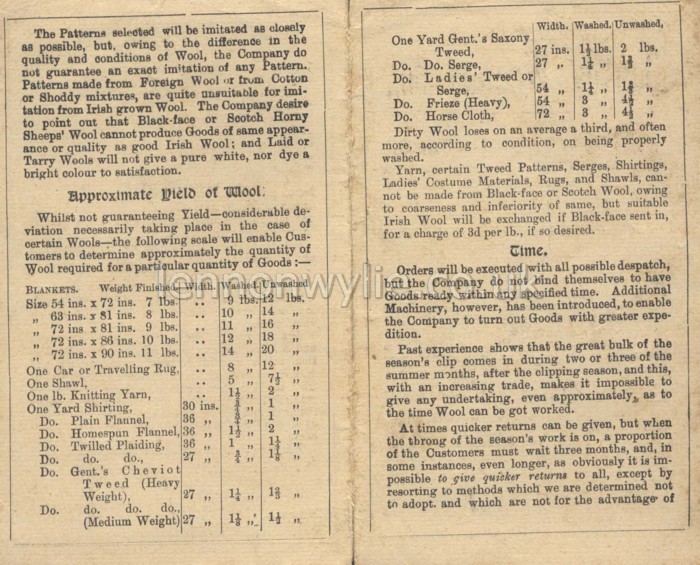 The Patterns selected will be imitated as closely
as possible, but, owing to the difference in the
quality and conditions of Wool, the Company do
not guarantee an exact imitation of any Pattern.
Patterns made from Foreign Wool or from Cotton
or Shoddy mixtures, are quite unsuitable for imi-
tation from Irish grown Wool. The Company desire
to point out that Black-face or Scotch Horny
Sheeps' Wool cannot produce Goods of same appear-
ance or quality as good Irish Wool; and Laid or
Tarry Wools will not give a pure white, nor dye a
bright colour to satisfaction.
Approximate Yield of Wool.
Whilst not guaranteeing Yield—considerable de-
viation necessarily taking place in the case of
certain Wools—the following scale will enable Cus-
tomers to determine approximately the quantity of
Wool required for a particular quantity of Goods :—
BLANKETS. Weight Finished. Width. Washed. Unwashed
Size 54 ins. x 72 ins. 7 lbs. .. 9 lbs. 12 lbs.
„ 63 ins. x 81 ins. 8 lbs. .. 10 „ 14 „
„ 72 ins. x 81 ins. 9 lbs. .. 11 „ 16 „
„ 72 ins. x 86 ins. 10 lbs. .. 12 „ 18 „
„ 72 ins. x 90 ins. 11 lbs. .. 14 „ 20 „
One Car or Travelling Rug, .. 8 „ 12 „
One Shawl, .. 5 „ 7½ „
One lb. Knitting Yarn, .. 1½ „ 2 „
One Yard Shirting, 30 ins. ¾ „ 1 „
Do. Plain Flannel, 36 „ ¾ „ 1 „
Do. Homespun Flannel, 36 „ 1½ „ 2 „
Do. Twilled Plaiding, 36 „ 1 „ „
Do. do. do., 27 „ ¾ „ 1⅛ „
Do. Gent.'s Cheviot
Tweed (Heavy
Weight), 27 „ 1¼ „ „
Do. do. do. do.,
(Medium Weight) 27 „ 1⅛ „ 1½ „
Width. Washed. Unwashed,
One Yard Gent.'s Saxony
Tweed, 27 ins. 1½ lbs. 2 lbs.
Do. Do. Serge, 27 „ 1¼ „ „
Do. Ladies' Tweed or
Serge, 54 „ 1¼ „ „
Do. Frieze (Heavy), 54 „ 3 „ 4½ „
Do. Horse Cloth, 72 „ 3 „ 4½ „
Dirty Wool loses on an average a third, and often
more, according to condition, on being properly
washed.
Yarn, certain Tweed Patterns, Serges, Shirtings,
Ladies' Costume Materials, Rugs, and Shawls, can-
not be made from Black-face or Scotch Wool, owing
to coarseness and inferiority of same, but suitable
Irish Wool will be exchanged if Black-face sent in,
for a charge of 3d per lb., if so desired.
Time.
Orders will be executed with all possible despatch,
but the Company do not bind themselves to have
Goods ready within any specified time. Additional
Machinery, however, has been introduced, to enable
the Company to turn out Goods with greater expe-
dition.
Past experience shows that the great bulk of the
season's clip comes in during two or three of the
summer months, after the clipping season, and this,
with an increasing trade, makes it impossible to
give any undertaking, even approximately, as to
the time Wool can be got worked.
At times quicker returns can be given, but when
the throng of the season's work is on, a proportion
of the Customers must wait three months, and, in
some instances, even longer, as obviously it is im-
possible to give quicker returns to all, except by
resorting to methods which we are determined not
to adopt. and which are not for the advantage of
lennonwylie.co.uk